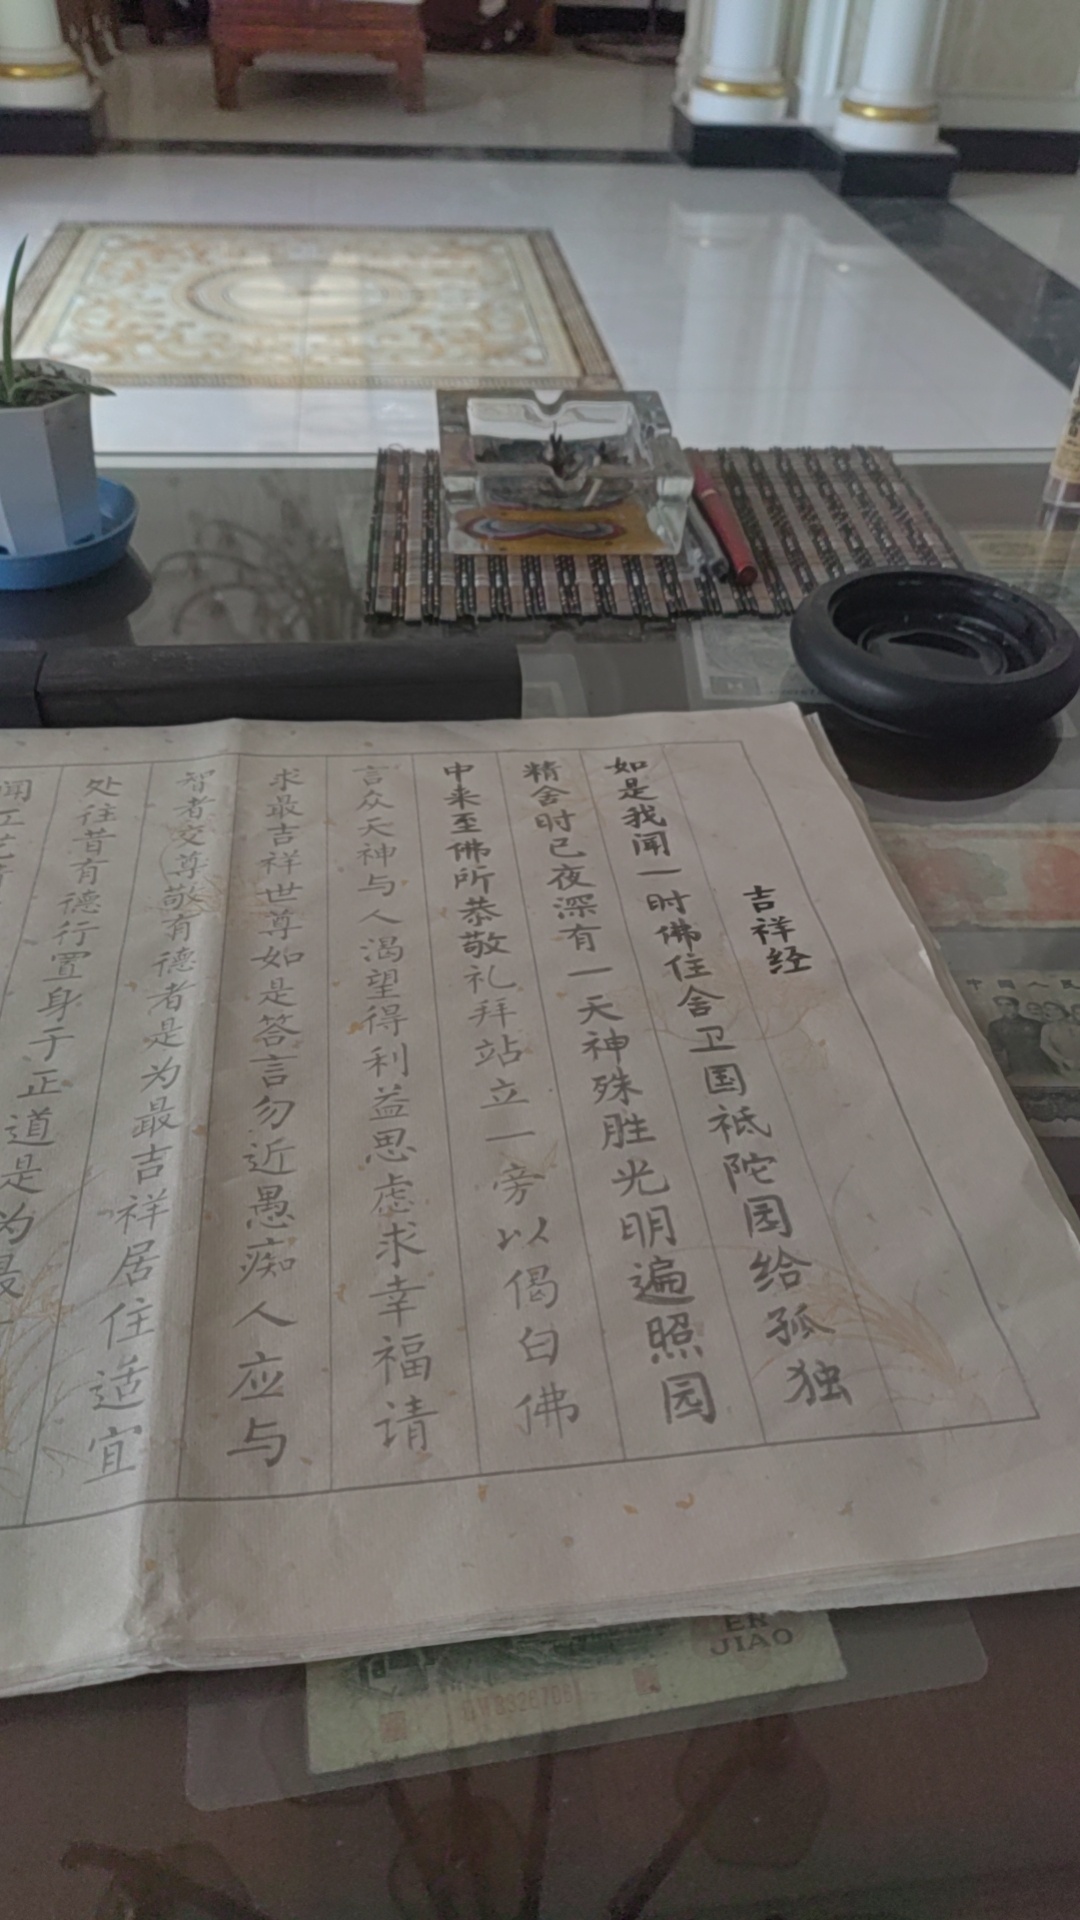 吉祥经
如是我闻一时佛住舍卫国祇陀园给孤独
精舍时已夜深有一天神殊胜光明遍照园
中来至佛所恭敬礼拜站立一旁以偈白佛
言众天神与人渴望得利益思虑求幸福请
求最吉祥世尊如是答言勿近愚痴人应与
智者交尊敬有德者是为最吉祥居住适宜
处往昔有德行置身于正道是为最
闻工艺
中国人民
ER
JIAO